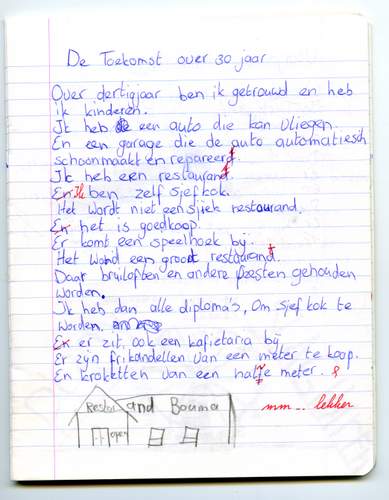 De Toekomst over 30 jaar
Over dertig jaar ben ik getrouwd en heb
ik kinderen.
Ik heb een auto die kan vliegen.
En een garage die de auto automatiesch
schoonmaakt en repareerd.
Ik heb een restaurand.
Ik ben zelf sjefkok.
Het wordt niet een sjiek restaurand.
En het is goedkoop.
Er komt een speelhoek bij.
Het word een groot restaurand.
Daar bruiloften en andere feesten gehouden
worden.
Ik heb dan alle diploma's, om sjef kok te
worden.
Er zit ook een kafietaria bij
Er zijn frikandellen van een meter te koop.
En kroketten van een halfe meter.
Restaurand Bouma
open
mm... lekker